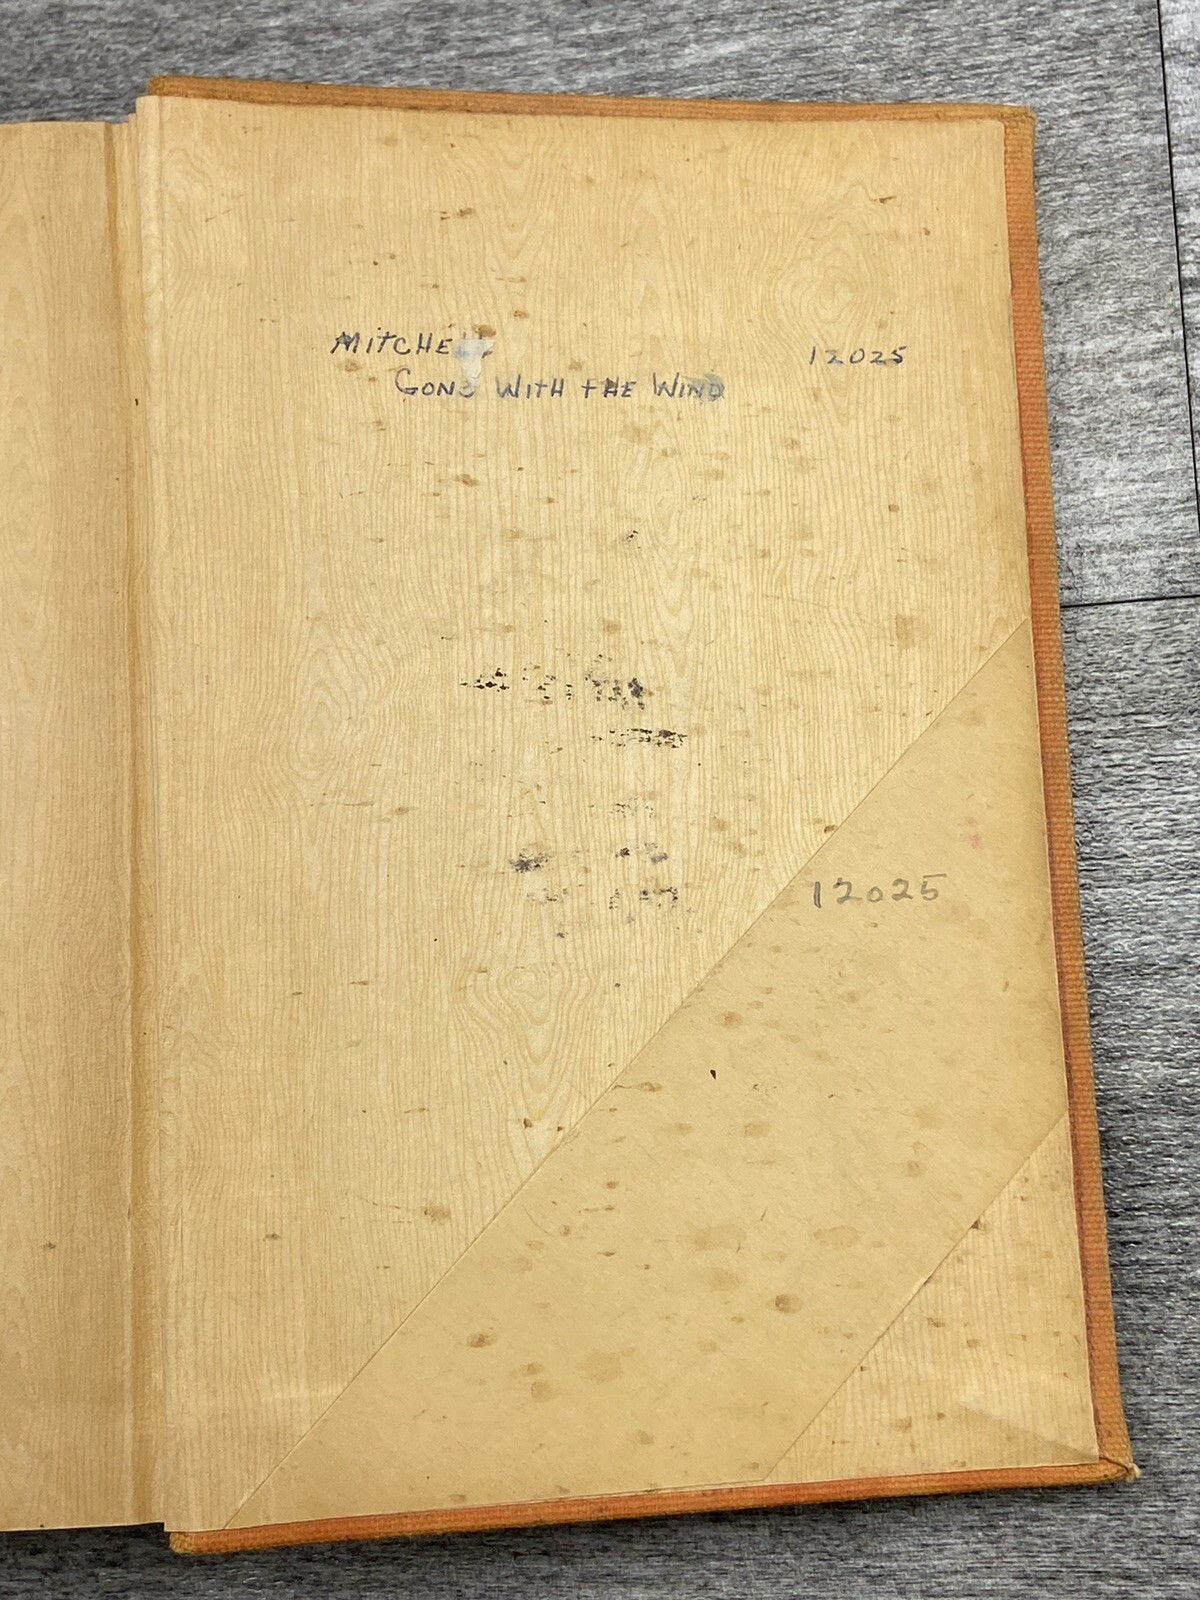 MITCHELL 12025
GONE WITH THE WIND
12025